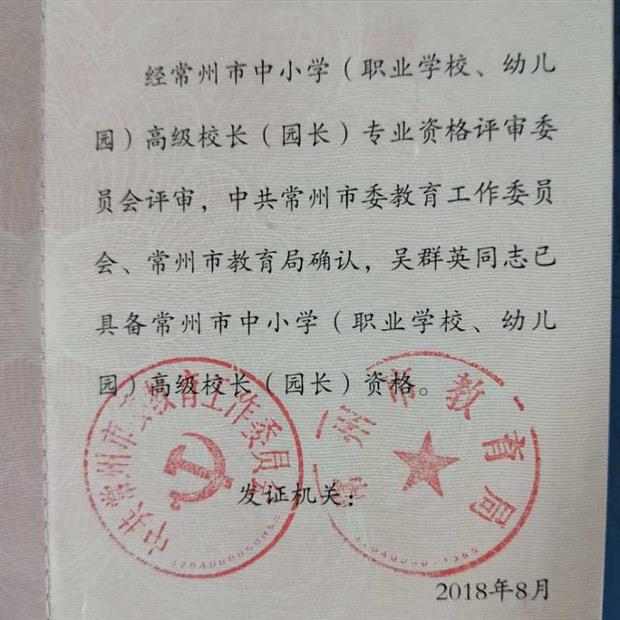 经常州市中小学（职业学校、幼儿
园）高级校长（园长）专业资格评审委
员会评审，中共常州市委教育工作委员
会、常州市教育局确认，吴群英同志已
具备常州市中小学（职业学校、幼儿
园）高级校长（园长）资格。
中共常州市委教育工作委员会
常州市教育局
发证机关：
2018年8月